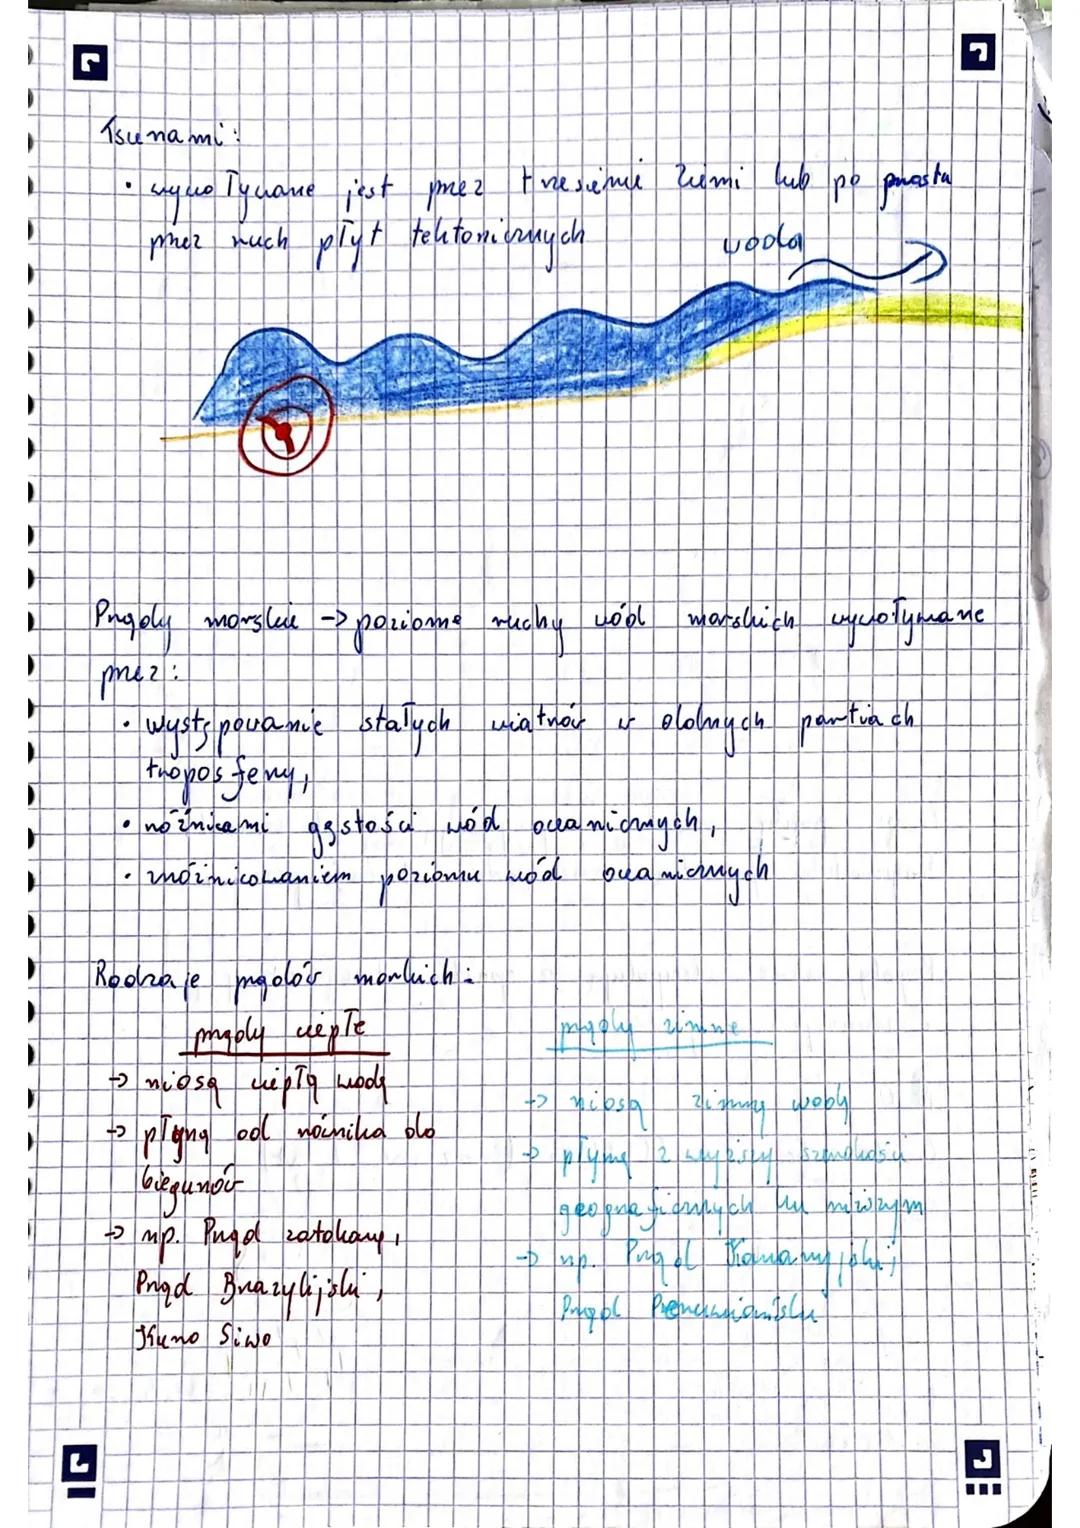 Tsunami:
• wywoływane jest przez trzesienie ziemi lub po prostu
przez ruch płyt tektonicznych
woda
Prądy morskie -> poziome ruchy wód morskich wywoływane
przez:
• występowanie stałych wiatrów w dolnych partiach
troposfery,
• różnicami gęstości wód oceanicznych,
• zróżnicowaniem poziomu wód oceanicznych
Rodzaje prądów morskich:
prądy ciepłe
-> niosą ciepłą wodę
-> płyną od równika do
biegunów
-> np. Prąd zatokowy,
Prąd Brazylijski,
Kuro Siwo
prądy zimne
-> niosą zimną wodę
-> płyną z wyższy szerokości
geograficznych ku niższym
-> np. Prąd Kanaryjski,
Prąd Peruwiański